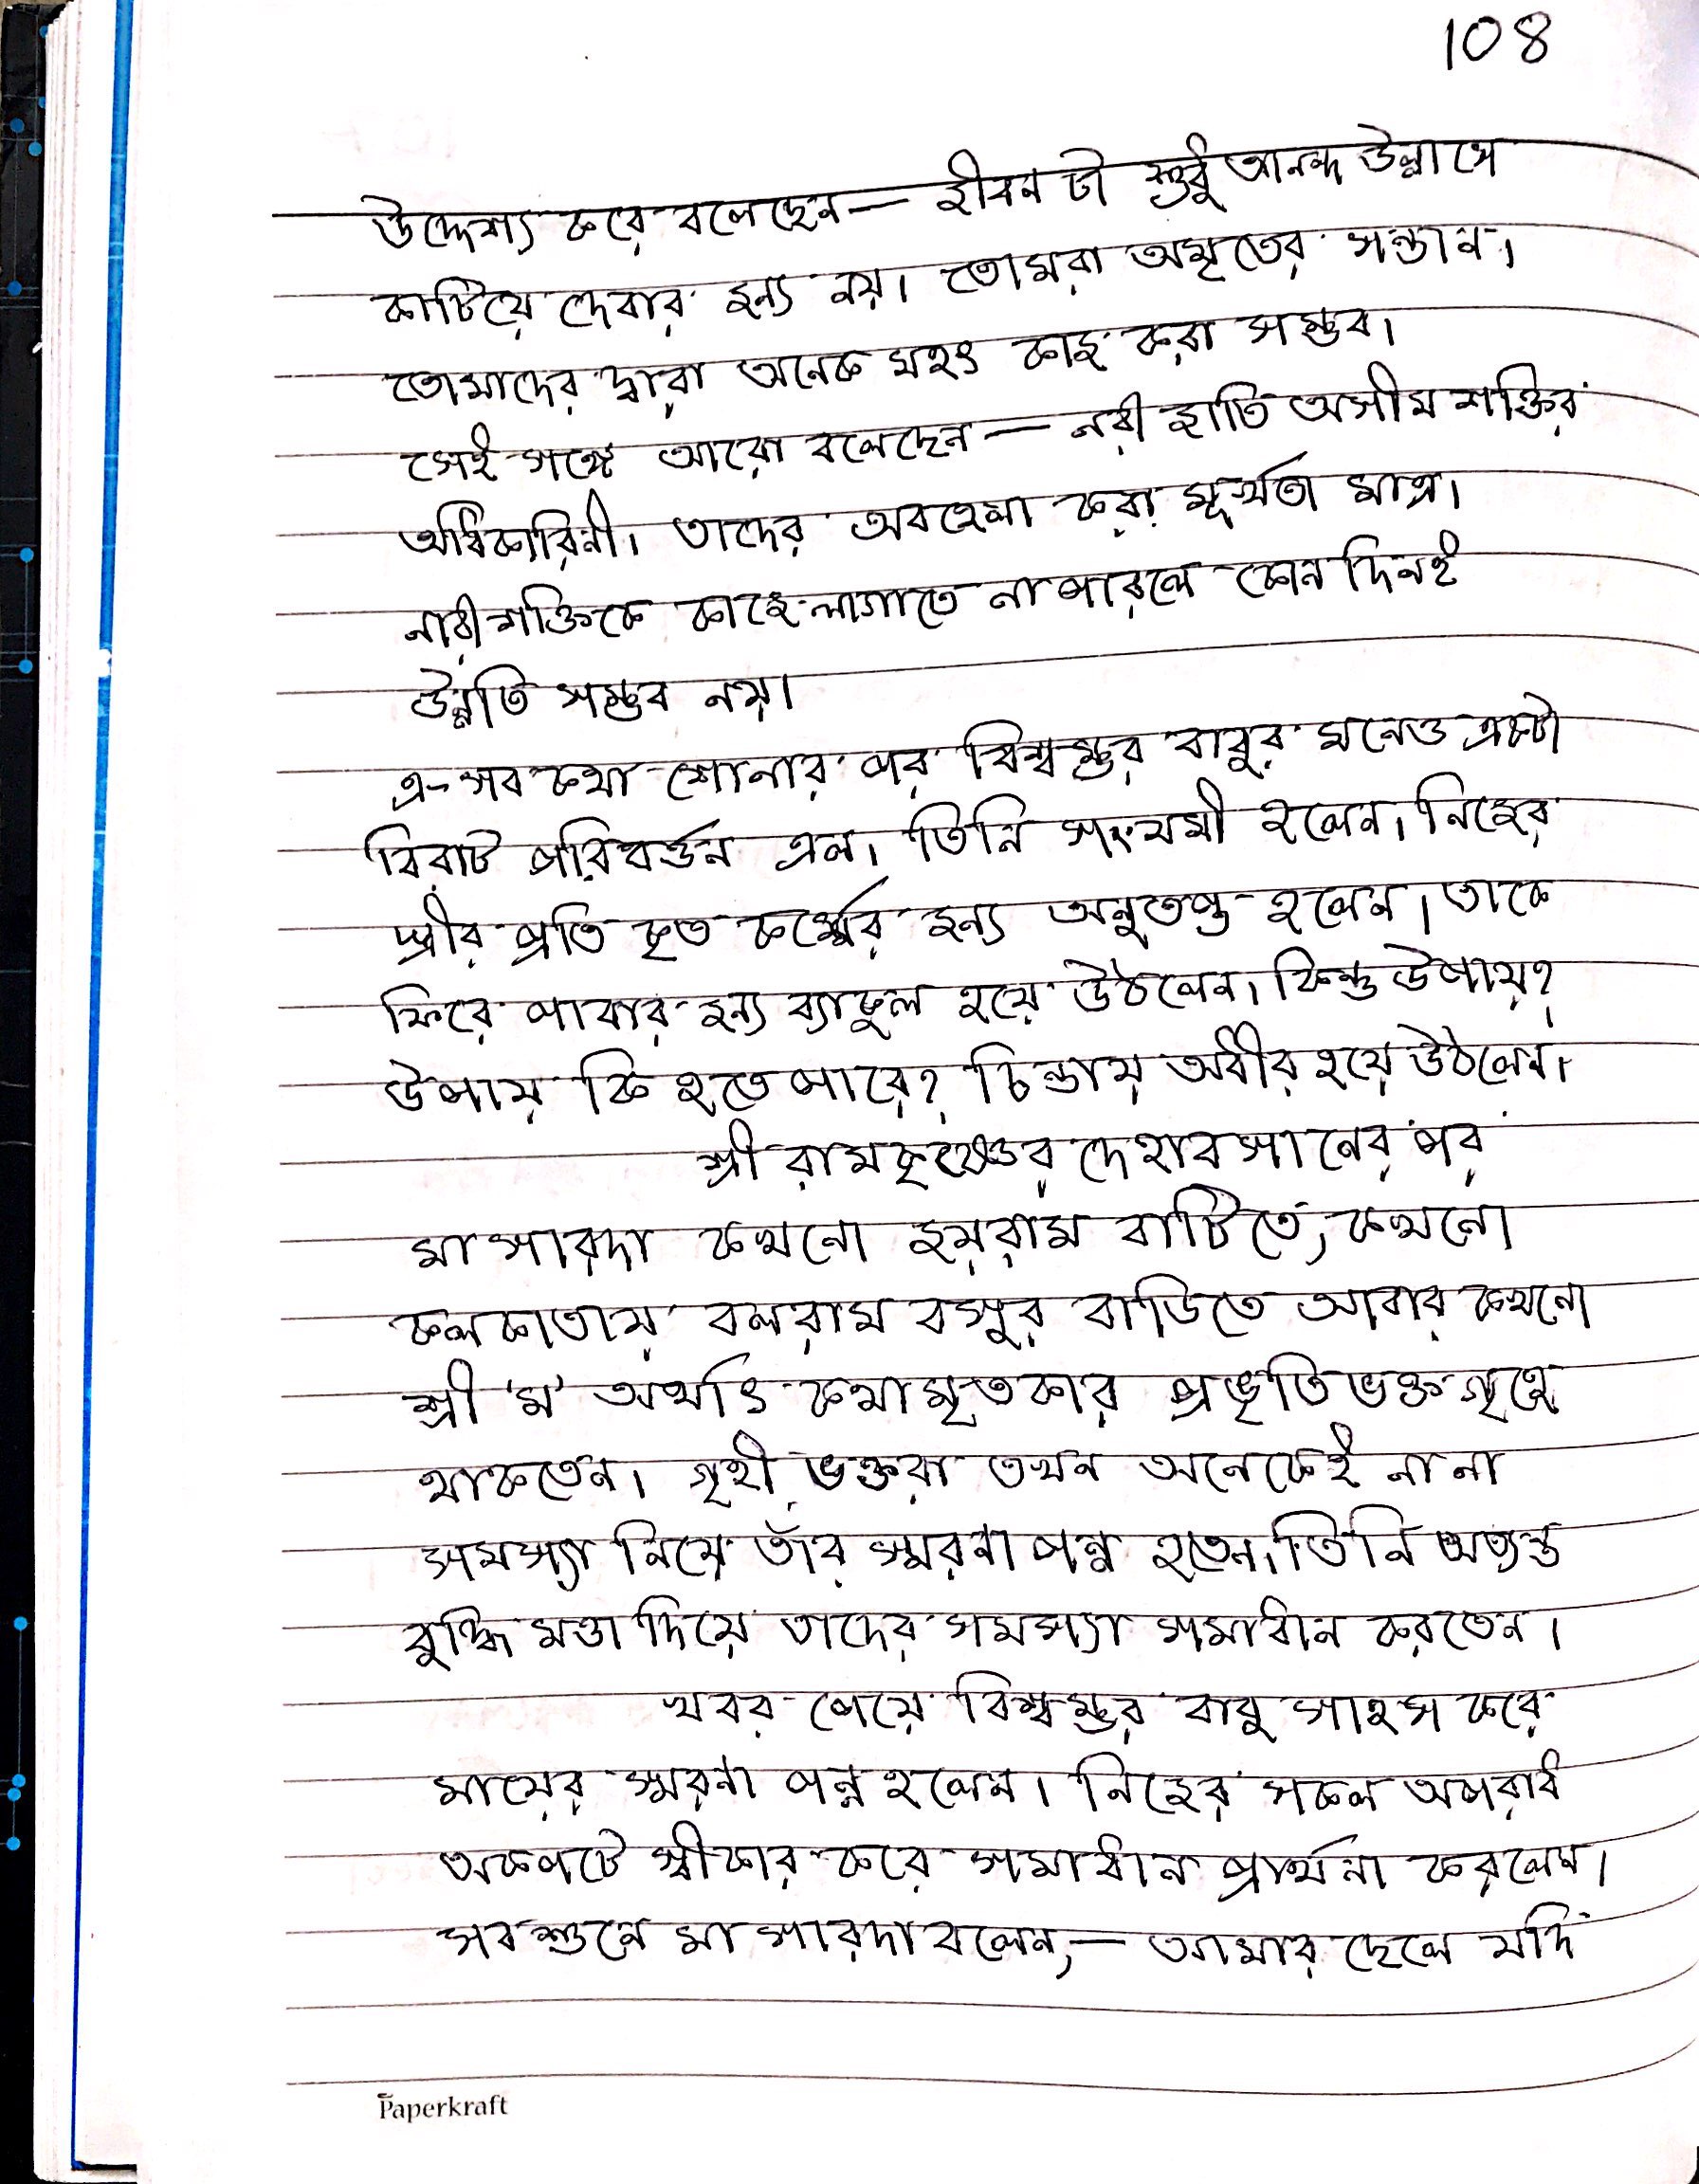 108
উদ্দেশ্য করে বলেছেন— জীবন টা শুধু আনন্দ উল্লাসে
কাটিয়ে দেবার জন্য নয়। তোমরা অমৃতের সন্তান।
তোমাদের দ্বারা অনেক মহৎ কাজ করা সম্ভব।
সেই সঙ্গে আরো বলেছেন— নারী জাতি অসীম শক্তির
অধিকারিনী। তাদের অবহেলা করা মূর্খতা মাত্র।
নারী শক্তিকে কাজে লাগাতে না পারলে কোন দিনই
উন্নতি সম্ভব নয়।
এ-সব কথা শোনার পর বিশ্বম্ভর বাবুর মনেও একটা
বিরাট পরিবর্ত্তন এল। তিনি সংযমী হলেন। নিজের
স্ত্রীর প্রতি কৃত কর্ম্মের জন্য অনুতপ্ত হলেন। তাকে
ফিরে পাবার জন্য ব্যাকুল হয়ে উঠলেন। কিন্তু উপায়?
উপায় কি হতে পারে? চিন্তায় অধীর হয়ে উঠলেন।
শ্রী রামকৃষ্ণের দেহাবসানের পর
মা সারদা কখনো জয়রাম বাটিতে, কখনো
কলকাতায় বলরাম বসুর বাডিতে আবার কখনো
শ্রী 'ম' অর্থাৎ কথামৃতকার প্রভৃতি ভক্ত গৃহে
থাকতেন। গৃহী ভক্তরা তখন অনেকেই নানা
সমস্যা নিয়ে তাঁর স্মরনাপন্ন হতেন। তিনি অত্যন্ত
বুদ্ধি মত্তা দিয়ে তাদের সমস্যা সমাধান করতেন।
খবর পেয়ে বিশ্বম্ভর বাবু সাহস করে
মায়ের স্মরনা পন্ন হলেন। নিজের সকল অপরাধ
অকপটে স্বীকার করে সমাধান প্রার্থনা করলেন।
সব শুনে মা সারদা বলেন,— আমার ছেলে যদি
Paperkraft